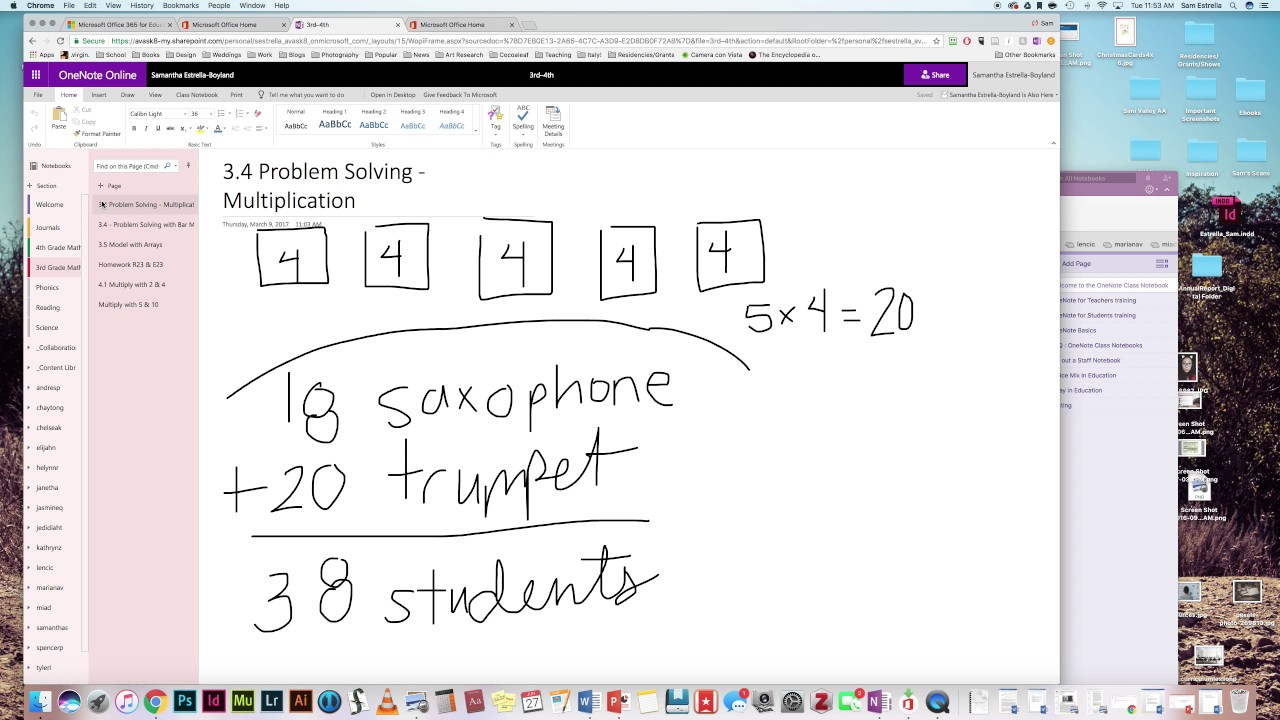 Chrome File Edit View History Bookmarks People Window Help
Tue 11:53 AM Sam Estrella
Microsoft Office 365 for Educ
Microsoft Office Home
3rd-4th
Microsoft Office Home
Sam
Secure
Apps
.virgin.
School
Books
Design
Weddings
Blogs
Photography
Popular
Art Research
Cocoaleaf
Teaching
Italy!
Residencies/Grants
Camera con Vista
The Encyclopedia o...
Other Bookmarks
OneNote Online
Samantha Estrella-Boyland
3rd-4th
Share
Samantha Estrella-Boyland
File Home Insert Draw View Class Notebook Print Tell me what you want to do Open In Desktop Give Feedback To Microsoft
Saved
Samantha Estrella-Boyland Is Also Here
Paste
Cut
Copy
Format Painter
Calibri Light 36
B I U abc
Normal Heading 1 Heading 2 Heading 3 Heading 4
AaBbCc AaBbCc AaBbCc AaBbCc AaBbCc
Tag
Spelling
Meeting Details
Undo Clipboard Basic Text Styles Tags Spelling Meetings
Notebooks
Find on this Page (Cmd
Section
Page
Welcome
Journals
4th Grade Math
3rd Grade Math
Phonics
Reading
Science
_Collaboratio
_Content Libr
andresp
chaytong
chelseak
elijahn
helynnr
janetha
jasmineq
jedidiaht
kathrynz
lencic
marianav
miad
samanthas
spencerp
tylerl
Problem Solving - Multiplicat
3.4 - Problem Solving with Bar M
3.5 Model with Arrays
Homework R23 & E23
4.1 Multiply with 2 & 4
Multiply with 5 & 10
3.4 Problem Solving -
Multiplication
Thursday, March 9, 2017 11:03 AM
4 4 4 4 4
5x4=20
18 saxophone
+20 trumpet
38 students
All Notebooks
lencic
marianav
Add Page
come to the OneNote Class Notebook
eNote for Teachers training
eNote for Students training
eNote Basics
: OneNote Class Notebooks
out a Staff Notebook
ice Mix in Education
ay in Education
ChristmasCards4x6.jpg
Residencies/Grants/Shows
Simi Valley AA
Important Screenshots
Ebooks
Inspiration
Sam's Scans
Estrella_Sam.indd
AnnualReport_Digital Folder
Screen Shot
Ps Id Mu Lr Ai